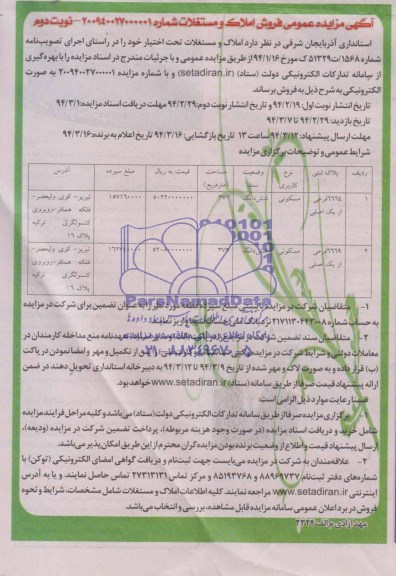 آگهی مزایده عمومی فروش املاک و مستغلات شماره ۲۰۰۹۴۰۰۲۷۰۰۰۰۰۱ - نوبت دوم
استانداری آذربایجان شرقی در نظر دارد املاک و مستغلات تحت اختیار خود را در راستای اجرای تصویب‌نامه
شماره ۱۵۶۸/ت۵۱۳۲۹ک مورخ ۹۴/۱/۱۶ از طریق مزایده عمومی و با جزئیات مندرج در اسناد مزایده را با بهره‌گیری
از سامانه تدارکات الکترونیکی دولت (ستاد) (setadiran.ir) و با شماره مزایده ۲۰۰۹۴۰۰۲۷۰۰۰۰۰۱ به صورت
الکترونیکی به شرح ذیل به فروش برساند.
تاریخ انتشار نوبت اول: ۹۴/۲/۱۹ و تاریخ انتشار نوبت دوم: ۹۴/۲/۲۹ مهلت دریافت اسناد مزایده: ۹۴/۳/۱
تاریخ بازدید: ۹۴/۲/۲۹ تا ۹۴/۳/۷
مهلت ارسال پیشنهاد: ۹۴/۳/۱۲ ساعت ۱۳ تاریخ بازگشایی: ۹۴/۳/۱۶ تاریخ اعلام به برنده: ۹۴/۳/۱۶
شرایط عمومی و توضیحات برگزاری مزایده
ردیف پلاک ثبتی نوع کاربری وضعیت سند مساحت (مترمربع) قیمت به ریال مبلغ سپرده آدرس
۱ ۶۶۶۴ فرعی از یک اصلی مسکونی شش‌دانگ تبریز- کوی ولیعصر- فلکه همافر- روبروی کنسولگری ترکیه پلاک ۱۶
۲ ۶۶۶۹ فرعی از یک اصلی مسکونی تبریز- کوی ولیعصر- فلکه همافر- روبروی کنسولگری ترکیه پلاک ۱۶
ParsNamadData
۰۲۱-۸۸۳۴۹۶۷۰-۵
۱- متقاضیان شرکت در مزایده به عنوان تضمین برای شرکت در مزایده
به حساب شماره ۲۱۷۱۱۳۰۴۴۳۰۰۸ واریز نمایند.
۲- متقاضیان سند تضمین تعهدنامه منع مداخله کارمندان در
معاملات دولتی و شرایط شرکت در مزایده پس از تکمیل و مهر و امضا نمودن در پاکت
(ب) قرار داده و به صورت لاک و مهر شده از تاریخ ۹۴/۳/۹ تا ۹۴/۳/۱۲ به دبیرخانه استانداری تحویل دهند در ضمن
ارائه پیشنهاد قیمت صرفا از طریق سامانه (ستاد) www.setadiran.ir خواهد بود.
ضمنا رعایت موارد ذیل الزامی است:
برگزاری مزایده صرفا از طریق سامانه تدارکات الکترونیکی دولت (ستاد) می‌باشد و کلیه مراحل فرایند مزایده
شامل خرید و دریافت اسناد مزایده (در صورت وجود هزینه مربوطه)، پرداخت تضمین شرکت در مزایده (ودیعه)،
ارسال پیشنهاد قیمت و اطلاع از وضعیت برنده بودن مزایده‌گران محترم از این طریق امکان‌پذیر می‌باشد.
۲- علاقه‌مندان به شرکت در مزایده می‌بایست جهت ثبت‌نام و دریافت گواهی امضای الکترونیکی (توکن) با
شماره‌های دفتر ثبت‌نام ۸۸۹۶۹۷۳۷ و ۸۵۱۹۳۷۶۸ و مرکز تماس ۲۷۳۱۳۱۳۱ تماس حاصل نمایند. و یا به آدرس
اینترنتی www.setadiran.ir مراجعه نمایند. کلیه اطلاعات املاک و مستغلات شامل مشخصات، شرایط و نحوه
فروش در برد اعلان عمومی سامانه مزایده قابل مشاهده، بررسی و انتخاب می‌باشد.